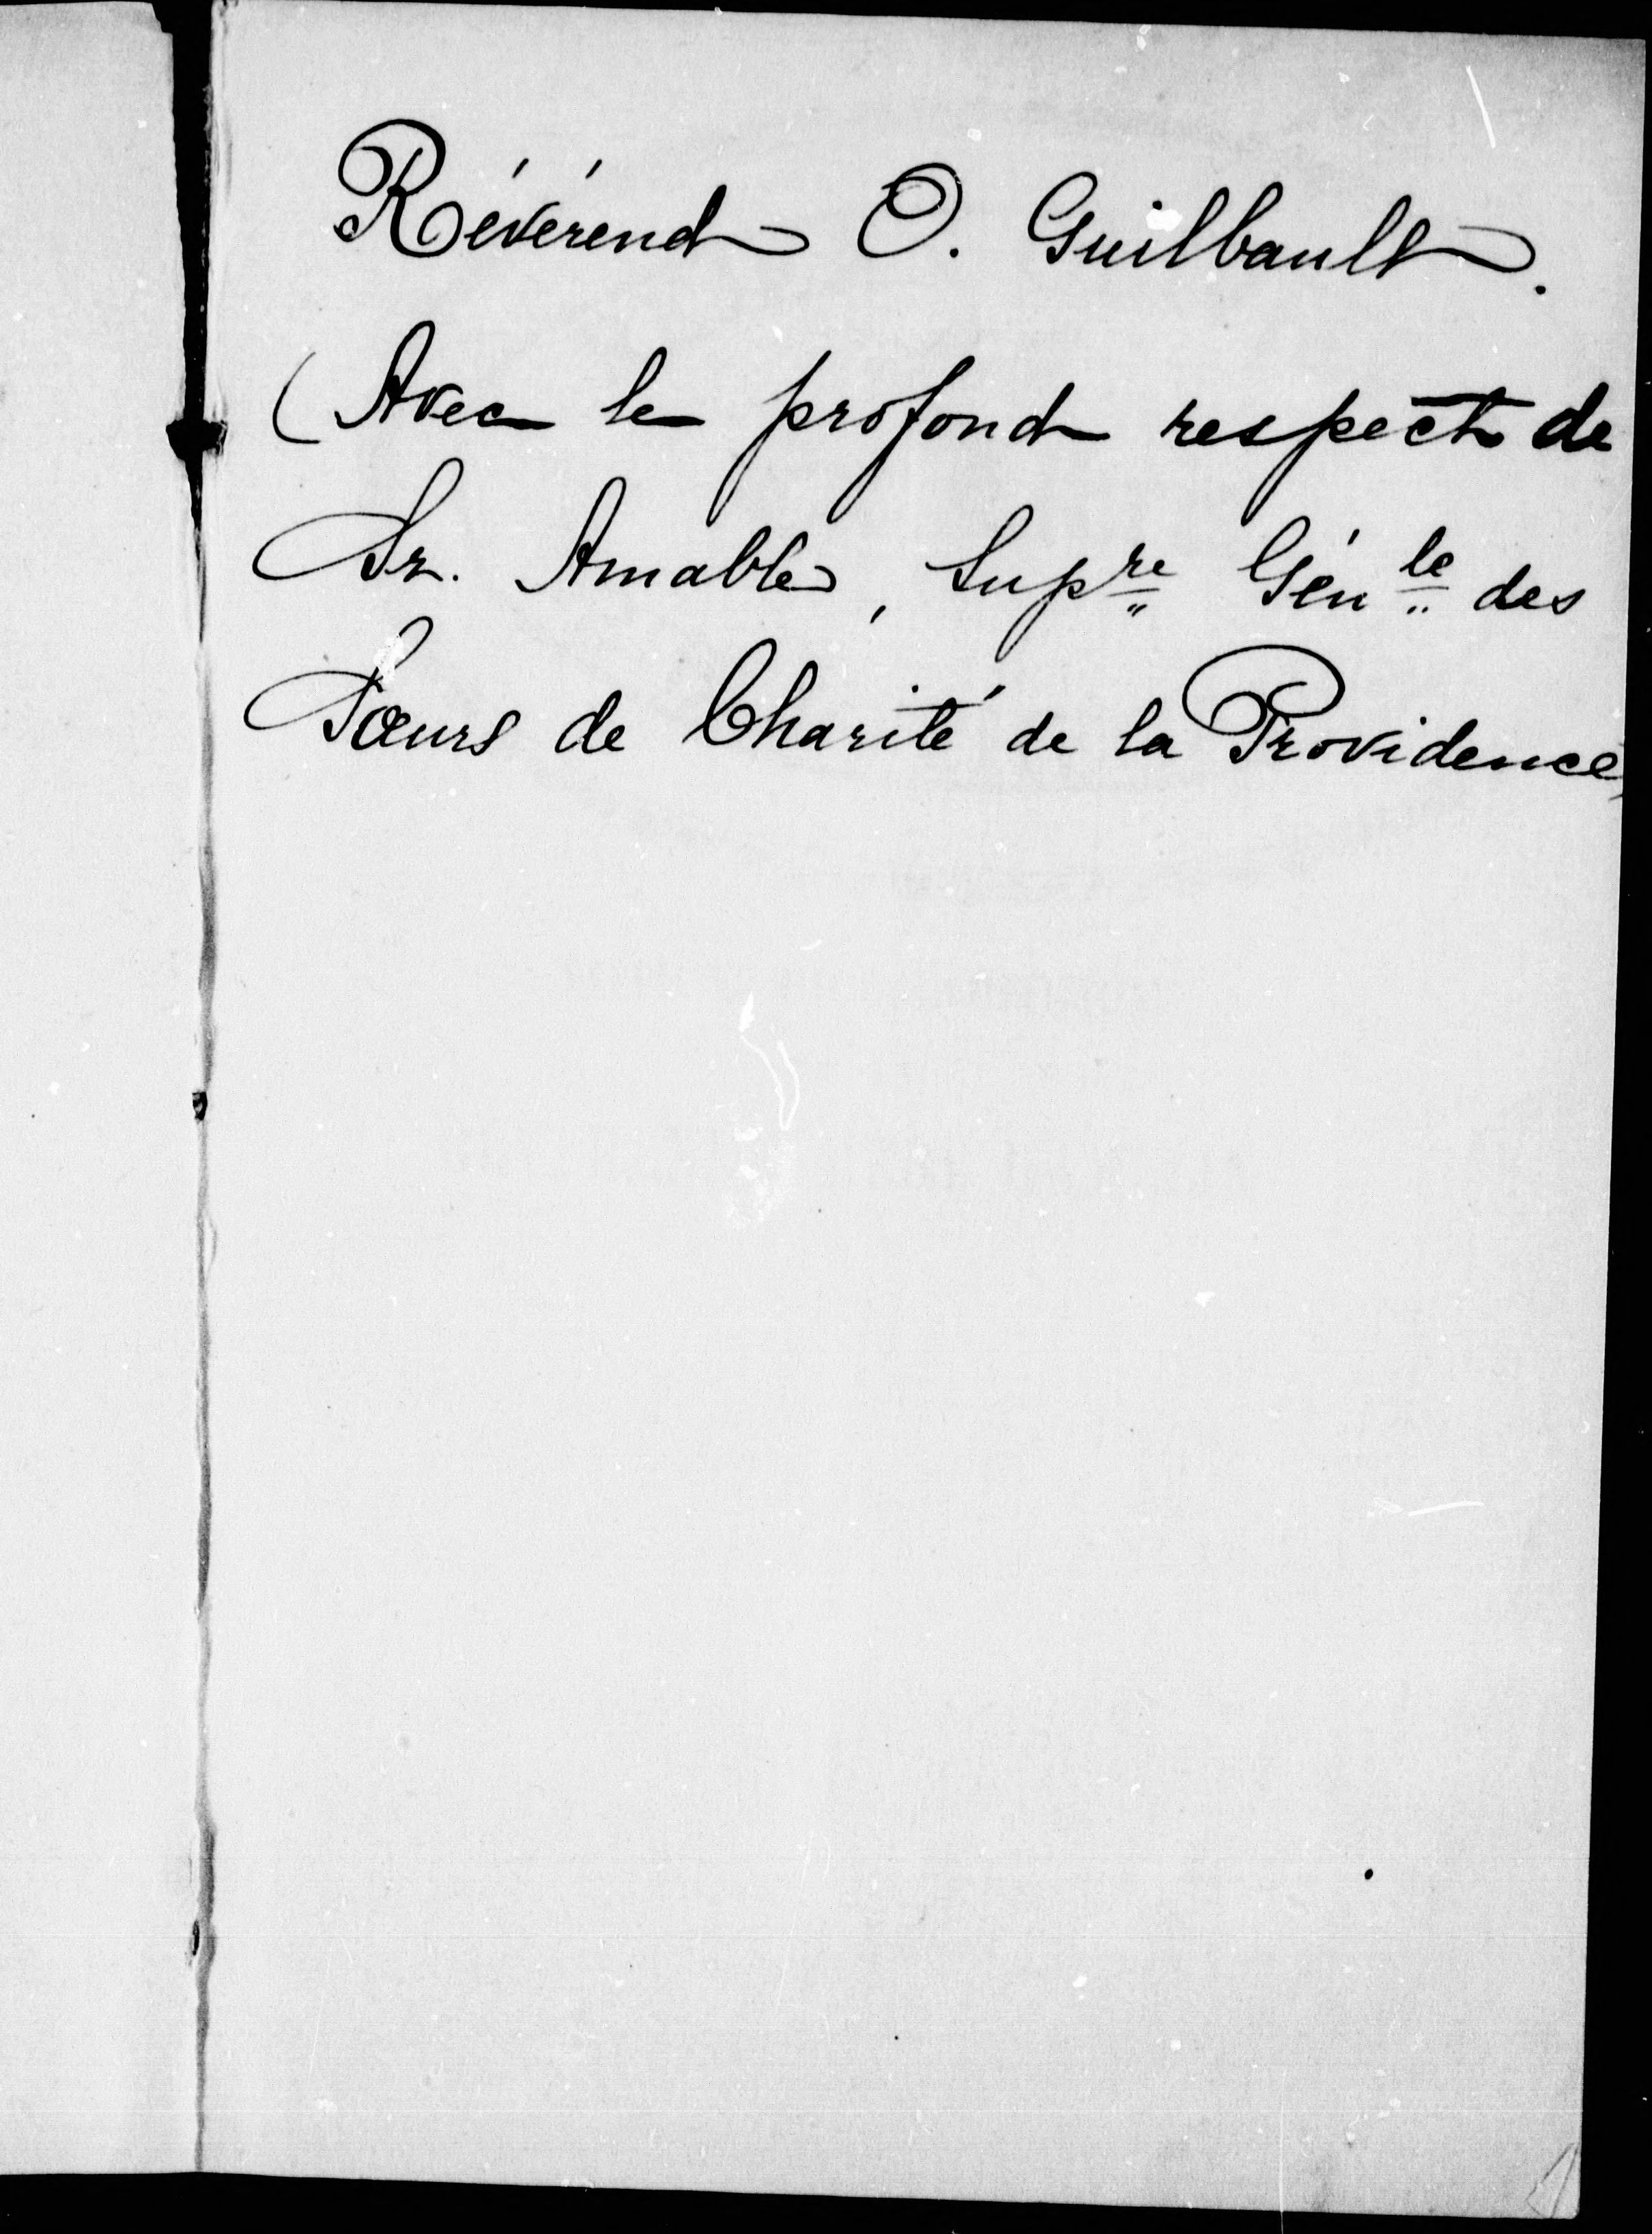 Révérend O. Guilbault.
(Avec le profond respect de
Sr. Amable, Supre Génle des
Sœurs de Charité de la Providence)